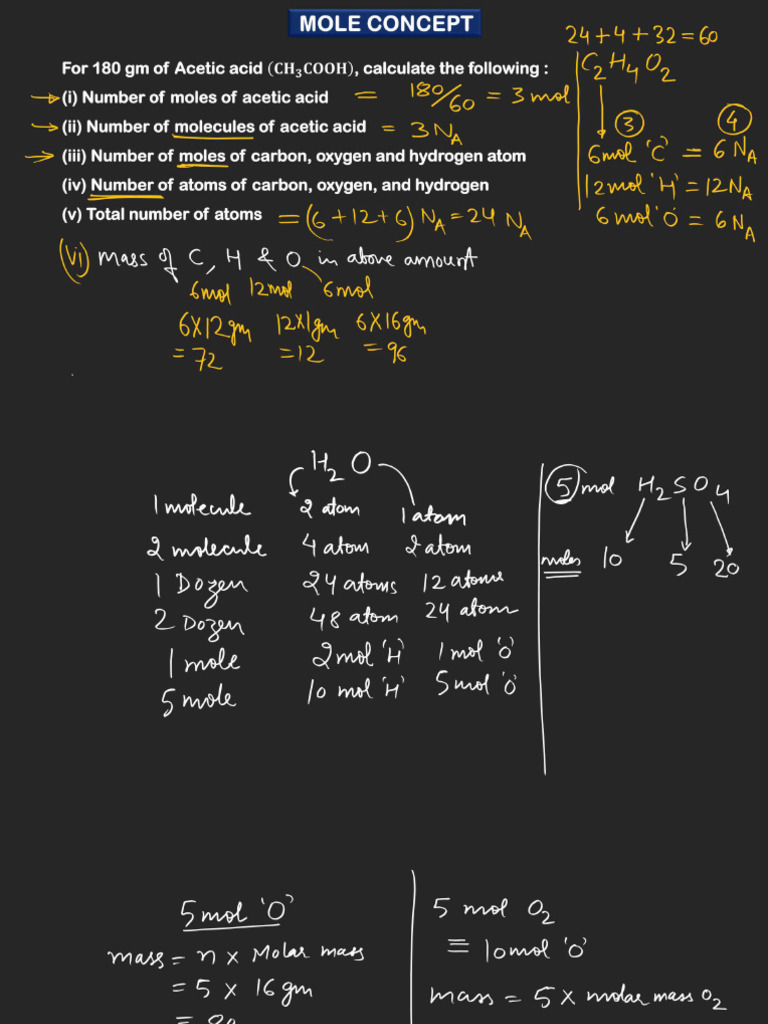 MOLE CONCEPT
24+4+32=60
For 180 gm of Acetic acid (CH₃COOH), calculate the following :
C₂H₄O₂
(i) Number of moles of acetic acid = 180/60 = 3 mol
(ii) Number of molecules of acetic acid = 3NA
③ ④
(iii) Number of moles of carbon, oxygen and hydrogen atom
6mol 'C' = 6NA
(iv) Number of atoms of carbon, oxygen, and hydrogen
12mol 'H' = 12NA
(v) Total number of atoms = (6+12+6) NA = 24 NA
6mol 'O' = 6NA
(vi) mass of C, H & O in above amount
6mol 12mol 6mol
6X12gm 12X1gm 6X16gm
=72 =12 =96
H₂O
1 molecule 2 atom 1 atom
2 molecule 4 atom 2 atom
1 Dozen 24 atoms 12 atoms
2 Dozen 48 atom 24 atom
1 mole 2mol 'H' 1 mol 'O'
5 mole 10 mol 'H' 5 mol 'O'
5 mol H₂SO₄
moles 10 5 20
5mol 'O'
mass = n x Molar mass
= 5 x 16gm
= 80
5 mol O₂
≡ 10mol 'O'
mass = 5 x molar mass O₂